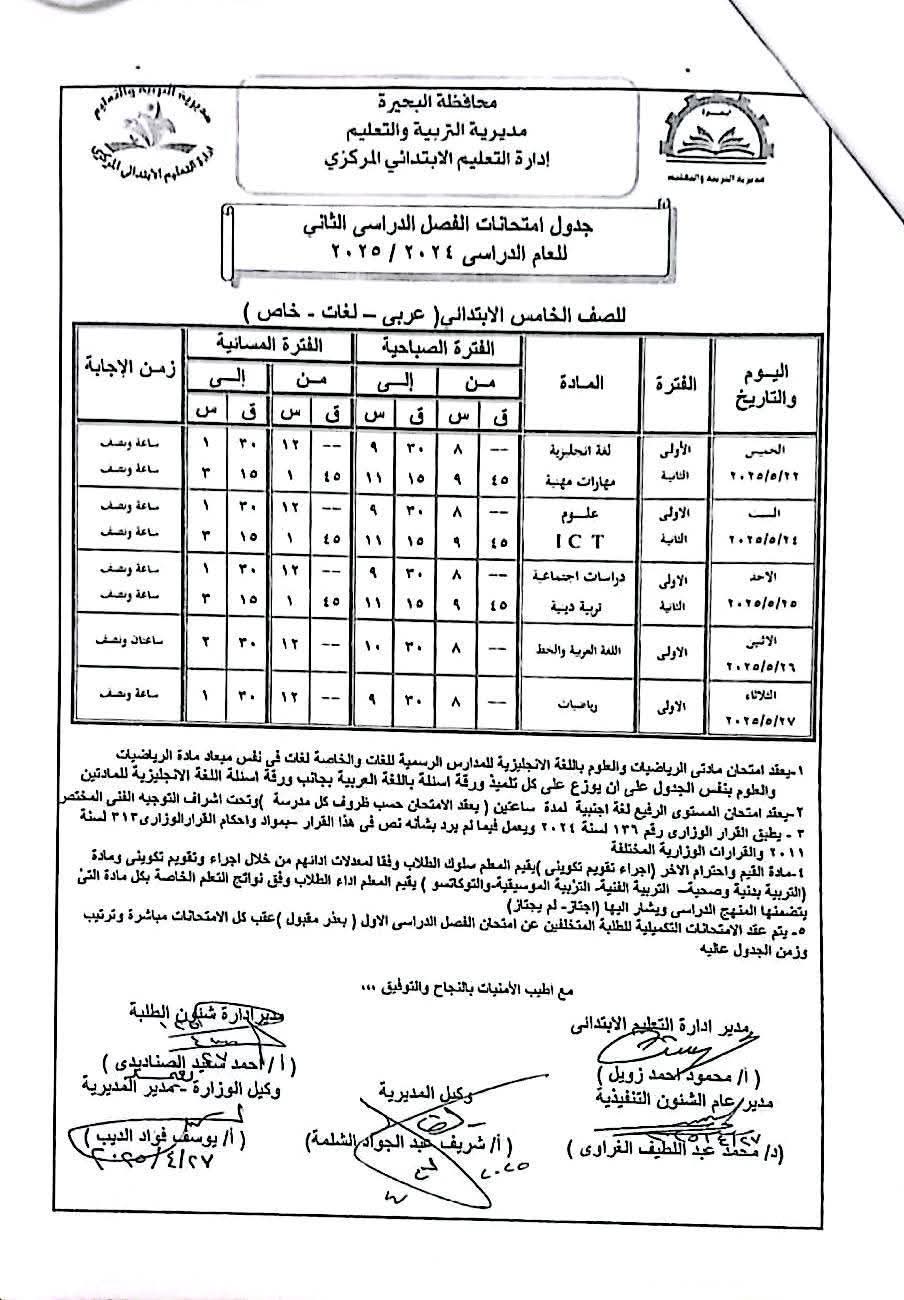 مديرية التربية والتعليم
إدارة التعليم الابتدائى المركزي
محافظة البحيرة
مديرية التربية والتعليم
إدارة التعليم الابتدائي المركزي
بحيرة
مديرية التربية والتعليم
جدول امتحانات الفصل الدراسى الثاني
للعام الدراسى ٢٠٢٤ / ٢٠٢٥
للصف الخامس الابتدائي( عربى – لغات - خاص )
اليوم والتاريخ | الفترة | المادة | الفترة الصباحية | الفترة المسائية | زمن الإجابة
من | إلى | من | إلى
ق | س | ق | س | ق | س | ق | س
الخميس | الأولى | لغة انجليزية | -- | ٨ | ٣٠ | ٩ | -- | ١٢ | ٣٠ | ١ | ساعة ونصف
٢٠٢٥/٥/٢٢ | الثانية | مهارات مهنية | ٤٥ | ٩ | ١٥ | ١١ | ٤٥ | ١ | ١٥ | ٣ | ساعة ونصف
السبت | الاولى | علـوم | -- | ٨ | ٣٠ | ٩ | -- | ١٢ | ٣٠ | ١ | ساعة ونصف
٢٠٢٥/٥/٢٤ | الثانية | I C T | ٤٥ | ٩ | ١٥ | ١١ | ٤٥ | ١ | ١٥ | ٣ | ساعة ونصف
الاحد | الاولى | دراسات اجتماعية | -- | ٨ | ٣٠ | ٩ | -- | ١٢ | ٣٠ | ١ | ساعة ونصف
٢٠٢٥/٥/٢٥ | الثانية | تربية دينية | ٤٥ | ٩ | ١٥ | ١١ | ٤٥ | ١ | ١٥ | ٣ | ساعة ونصف
الاثنين ٢٠٢٥/٥/٢٦ | الاولى | اللغة العربية والخط | -- | ٨ | ٣٠ | ١٠ | -- | ١٢ | ٣٠ | ٢ | ساعتان ونصف
الثلاثاء ٢٠٢٥/٥/٢٧ | الاولى | رياضيات | -- | ٨ | ٣٠ | ٩ | -- | ١٢ | ٣٠ | ١ | ساعة ونصف
١-يعقد امتحان مادتى الرياضيات والعلوم باللغة الانجليزية للمدارس الرسمية للغات والخاصة لغات فى نفس ميعاد مادة الرياضيات
والعلوم بنفس الجدول على ان يوزع على كل تلميذ ورقة اسئلة باللغة العربية بجانب ورقة اسئلة اللغة الانجليزية للمادتين
٢-يعقد امتحان المستوى الرفيع لغة اجنبية لمدة ساعتين ( يعقد الامتحان حسب ظروف كل مدرسة )وتحت اشراف التوجيه الفنى المختص
٣ - يطبق القرار الوزارى رقم ١٣٦ لسنة ٢٠٢٤ ويعمل فيما لم يرد بشأنه نص فى هذا القرار –بمواد واحكام القرارالوزارى٣١٣ لسنة
٢٠١١ والقرارات الوزارية المختلفة
٤-مادة القيم واحترام الاخر (اجراء تقويم تكوينى )يقيم المعلم سلوك الطلاب وفقا لمعدلات ادائهم من خلال اجراء وتقويم تكوينى ومادة
(التربية بدنية وصحية– التربية الفنية- التربية الموسيقية-والتوكاتسو ) يقيم المعلم اداء الطلاب وفق نواتج التعلم الخاصة بكل مادة التى
يتضمنها المنهج الدراسى ويشار اليها (اجتاز- لم يجتاز)
٥- يتم عقد الامتحانات التكميلية للطلبة المتخلفين عن امتحان الفصل الدراسى الاول ( بعذر مقبول )عقب كل الامتحانات مباشرة وترتيب
وزمن الجدول عاليه
مع اطيب الأمنيات بالنجاح والتوفيق ،،،
مدير ادارة التعليم الابتدائى
( أ/ محمود احمد زويل )
مدير عام الشئون التنفيذية
(د/ محمد عبد اللطيف الغراوى )
وكيل المديرية
( أ/ شريف عبد الجواد الشلمة )
٢٠٢٥
مدير ادارة شئون الطلبة
( أ/ احمد سعيد الصناديدى )
وكيل الوزارة – مدير المديرية
( أ/ يوسف فؤاد الديب )
٢٠٢٥/٤/٢٧